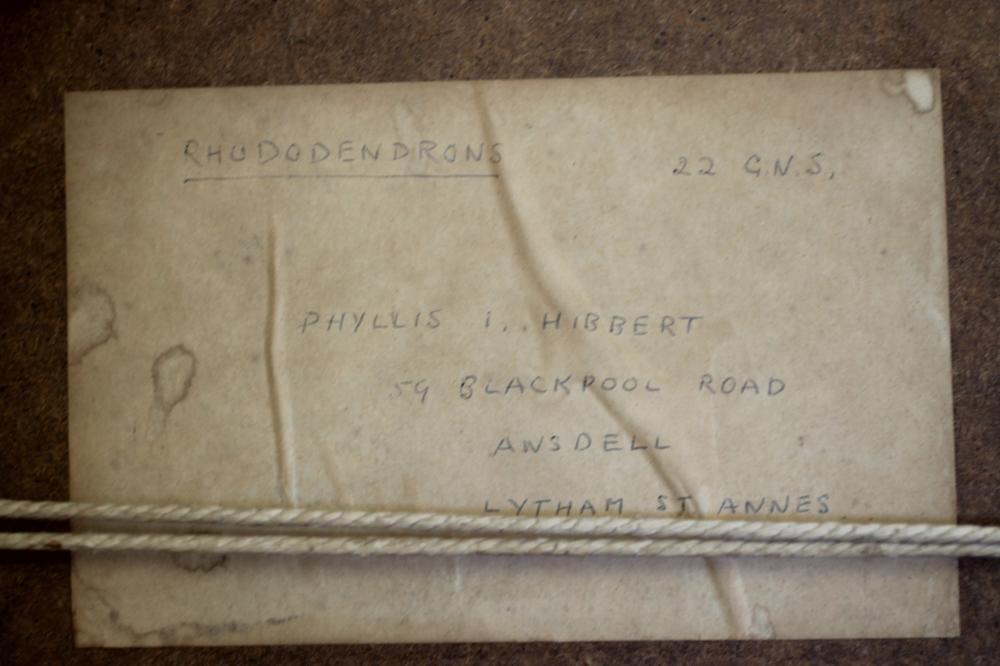 RHODODENDRONS 22 G.N.S,
PHYLLIS I.. HIBBERT
59 BLACKPOOL ROAD
ANSDELL
LYTHAM ST ANNES.